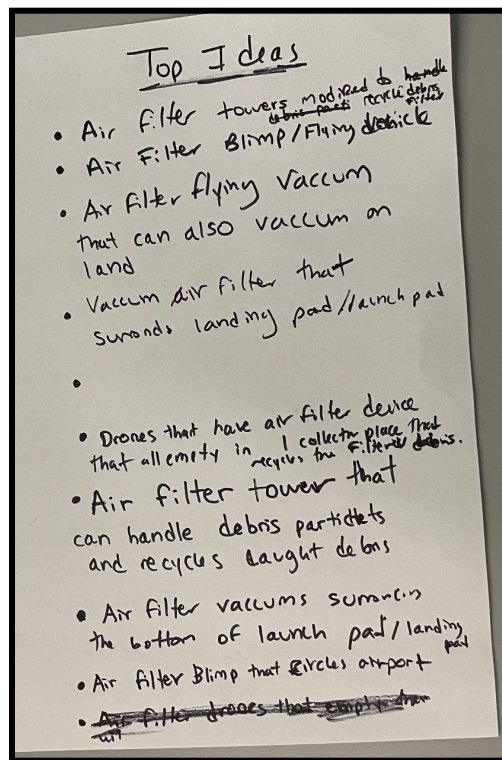 Top Ideas
• Air filter towers modified to handle
debris recycle debris filter
• Air Filter Blimp/Flying
• Air filter flying Vaccum
that can also vaccum on
land
• Vaccum air filter that
suronds landing pad/launch pad
•
• Drones that have air filter device
that all emety in 1 collector place that
recycles the filtered debris.
• Air filter tower that
can handle debris partidlets
and recycles caught debris
• Air filter vaccums
the bottom of launch pad/landing
pad
• Air filter Blimp that circles airport
• Air filter drones that empty